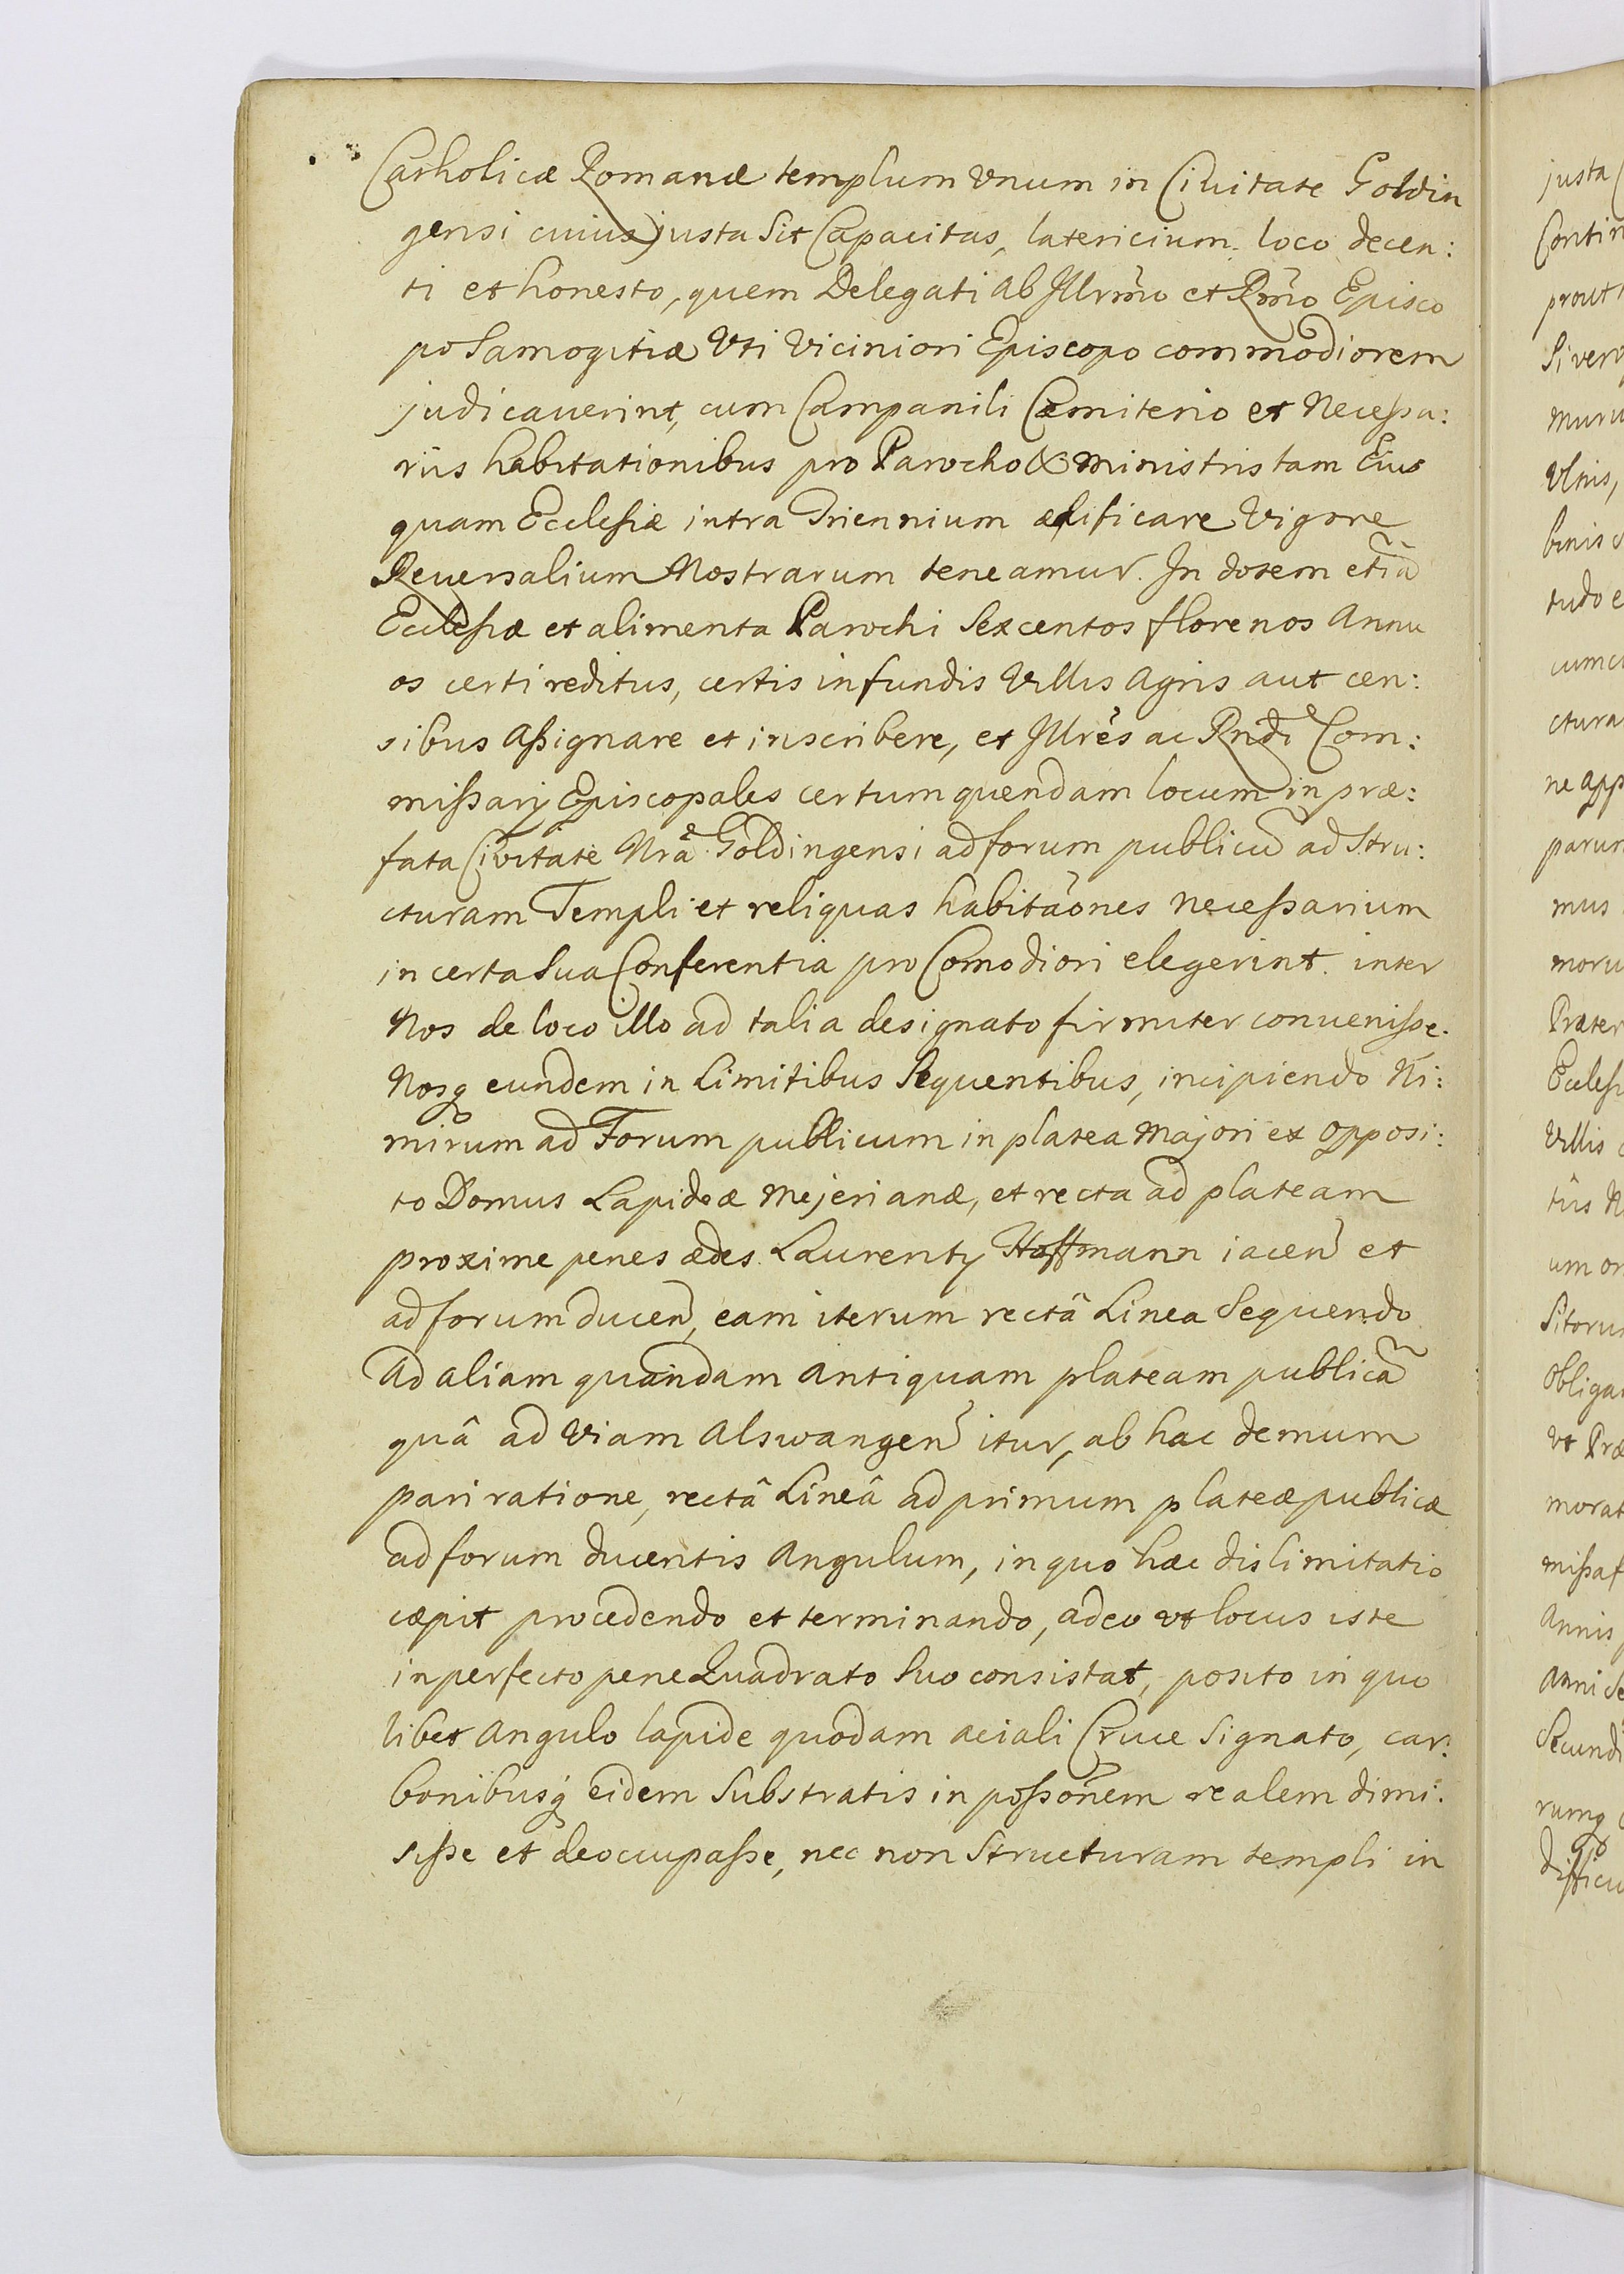 Catholicæ Romanæ templum vnum in Ciuitate Goldin
gensi cuius justa sit Capacitas, latericium loco decen:
ti et honesto, quem Delegati ab Illrm̃o et Rm̃o Episco
po Samogitiæ Vti Viciniori Episcopo commodiorem
judicauerint, cum Campanili Cæmiterio et Necessa:
riis habitationibus pro Parocho & ministris tam Eius
quam Ecclesiæ intra Triennium ædificare Vigore
Reuersalium Nostrarum teneamur. In dotem etiã
Ecclesiæ et alimenta Parochi sexcentos florenos Annu
os certi reditus, certis in fundis Villis Agris aut cen:
sibus Assignare et inscribere, et Illrẽs ac Rndĩ Com:
missarij Episcopales certum quendam locum in præ:
fata Civitate Nrã Goldingensi ad forum publicũ ad Stru:
cturam Templi et reliquas habitaõnes necessarium
in certa sua Conferentia pro Comodiori elegerint. inter
Nos de loco illo ad talia designato firmiter conuenisse.
Nosq eundem in Limitibus Sequentibus, incipiendo Ni:
mirum ad Forum publicum in platea Majori ex opposi:
to Domus Lapideæ Mejerianæ, et recta ad plateam
proxime penes ædes Laurentij Hoffmann iaceñ et
ad forum duceñ, eam iterum rectâ Linea Sequendo
Ad aliam quandam Antiquam plateam publicã
quâ ad Viam Alswangeñ itur, ab hac demum
pari ratione, rectâ Lineâ ad primum plateæ publicæ
ad forum ducentis Angulum, in quo hæc dislimitatio
cæpit procedendo et terminando, adeo vt locus iste
in perfecto pene Quadrato Suo consistat, posito in quo
libet Angulo lapide quodam aciali Cruce signato, car:
bonibusq́ eidem Substratis in possõnem realem dimi:
sisse et deoccupasse, nec non Structuram templi in
justa
prout
Si vero
Vlnis,
ne app
mus
Præter
Ecclesi
Villis
um or
vt Præ
morat
Annis
Anni Se
Secundi
rumq